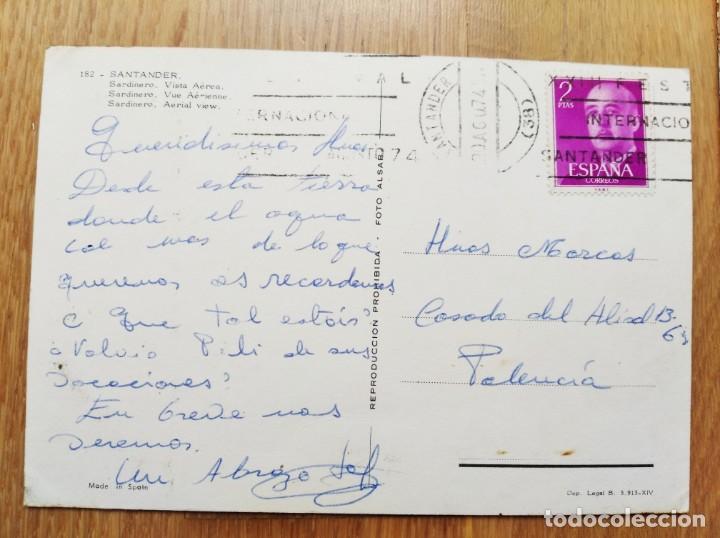 182 - SANTANDER.
Sardinero. Vista Aérea.
Sardinero. Vue Aérienne.
Sardinero. Aerial view.
SANTANDER
(38)
INTERNACIO
SANTANDER
2
PTAS
ESPAÑA
CORREOS
Queridisimos Hnos
Desde esta tierra
donde el agua
cae mas de lo que
queremos os recordamos
¿ Que tal estáis?
¿ Volvio Pili de sus
vacaciones?
En breve nos
veremos.
Un Abrazo
Made in Spain
REPRODUCCION PROHIBIDA - FOTO ALSAR
Hnos Marcos
Casado del Alisal 13-
Palencia
Dep. Legal B. 3.913-XIV
todocoleccion